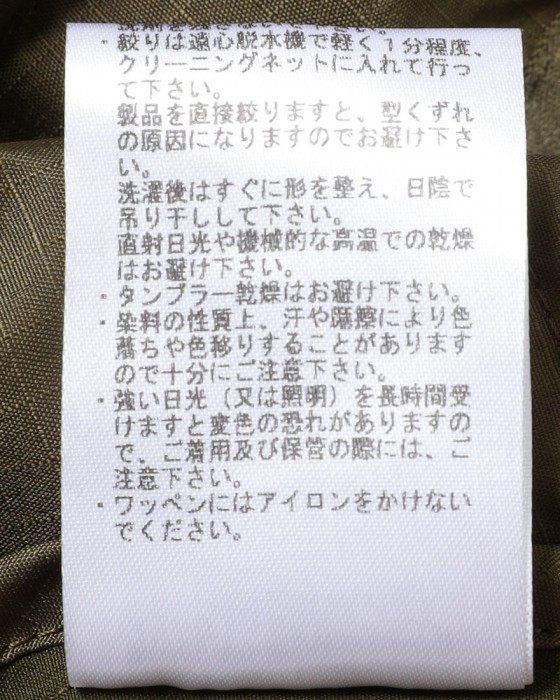 ・絞りは遠心脱水機で軽く1分程度、
クリーニングネットに入れて行っ
て下さい。
製品を直接絞りますと、型くずれ
の原因になりますのでお避け下さ
い。
洗濯後はすぐに形を整え、日陰で
吊り干しして下さい。
直射日光や機械的な高温での乾燥
はお避け下さい。
・タンブラー乾燥はお避け下さい。
・染料の性質上、汗や磨擦により色
落ちや色移りすることがあります
ので十分にご注意下さい。
・強い日光（又は照明）を長時間受
けますと変色の恐れがありますの
で、ご着用及び保管の際には、ご
注意下さい。
・ワッペンにはアイロンをかけない
でください。